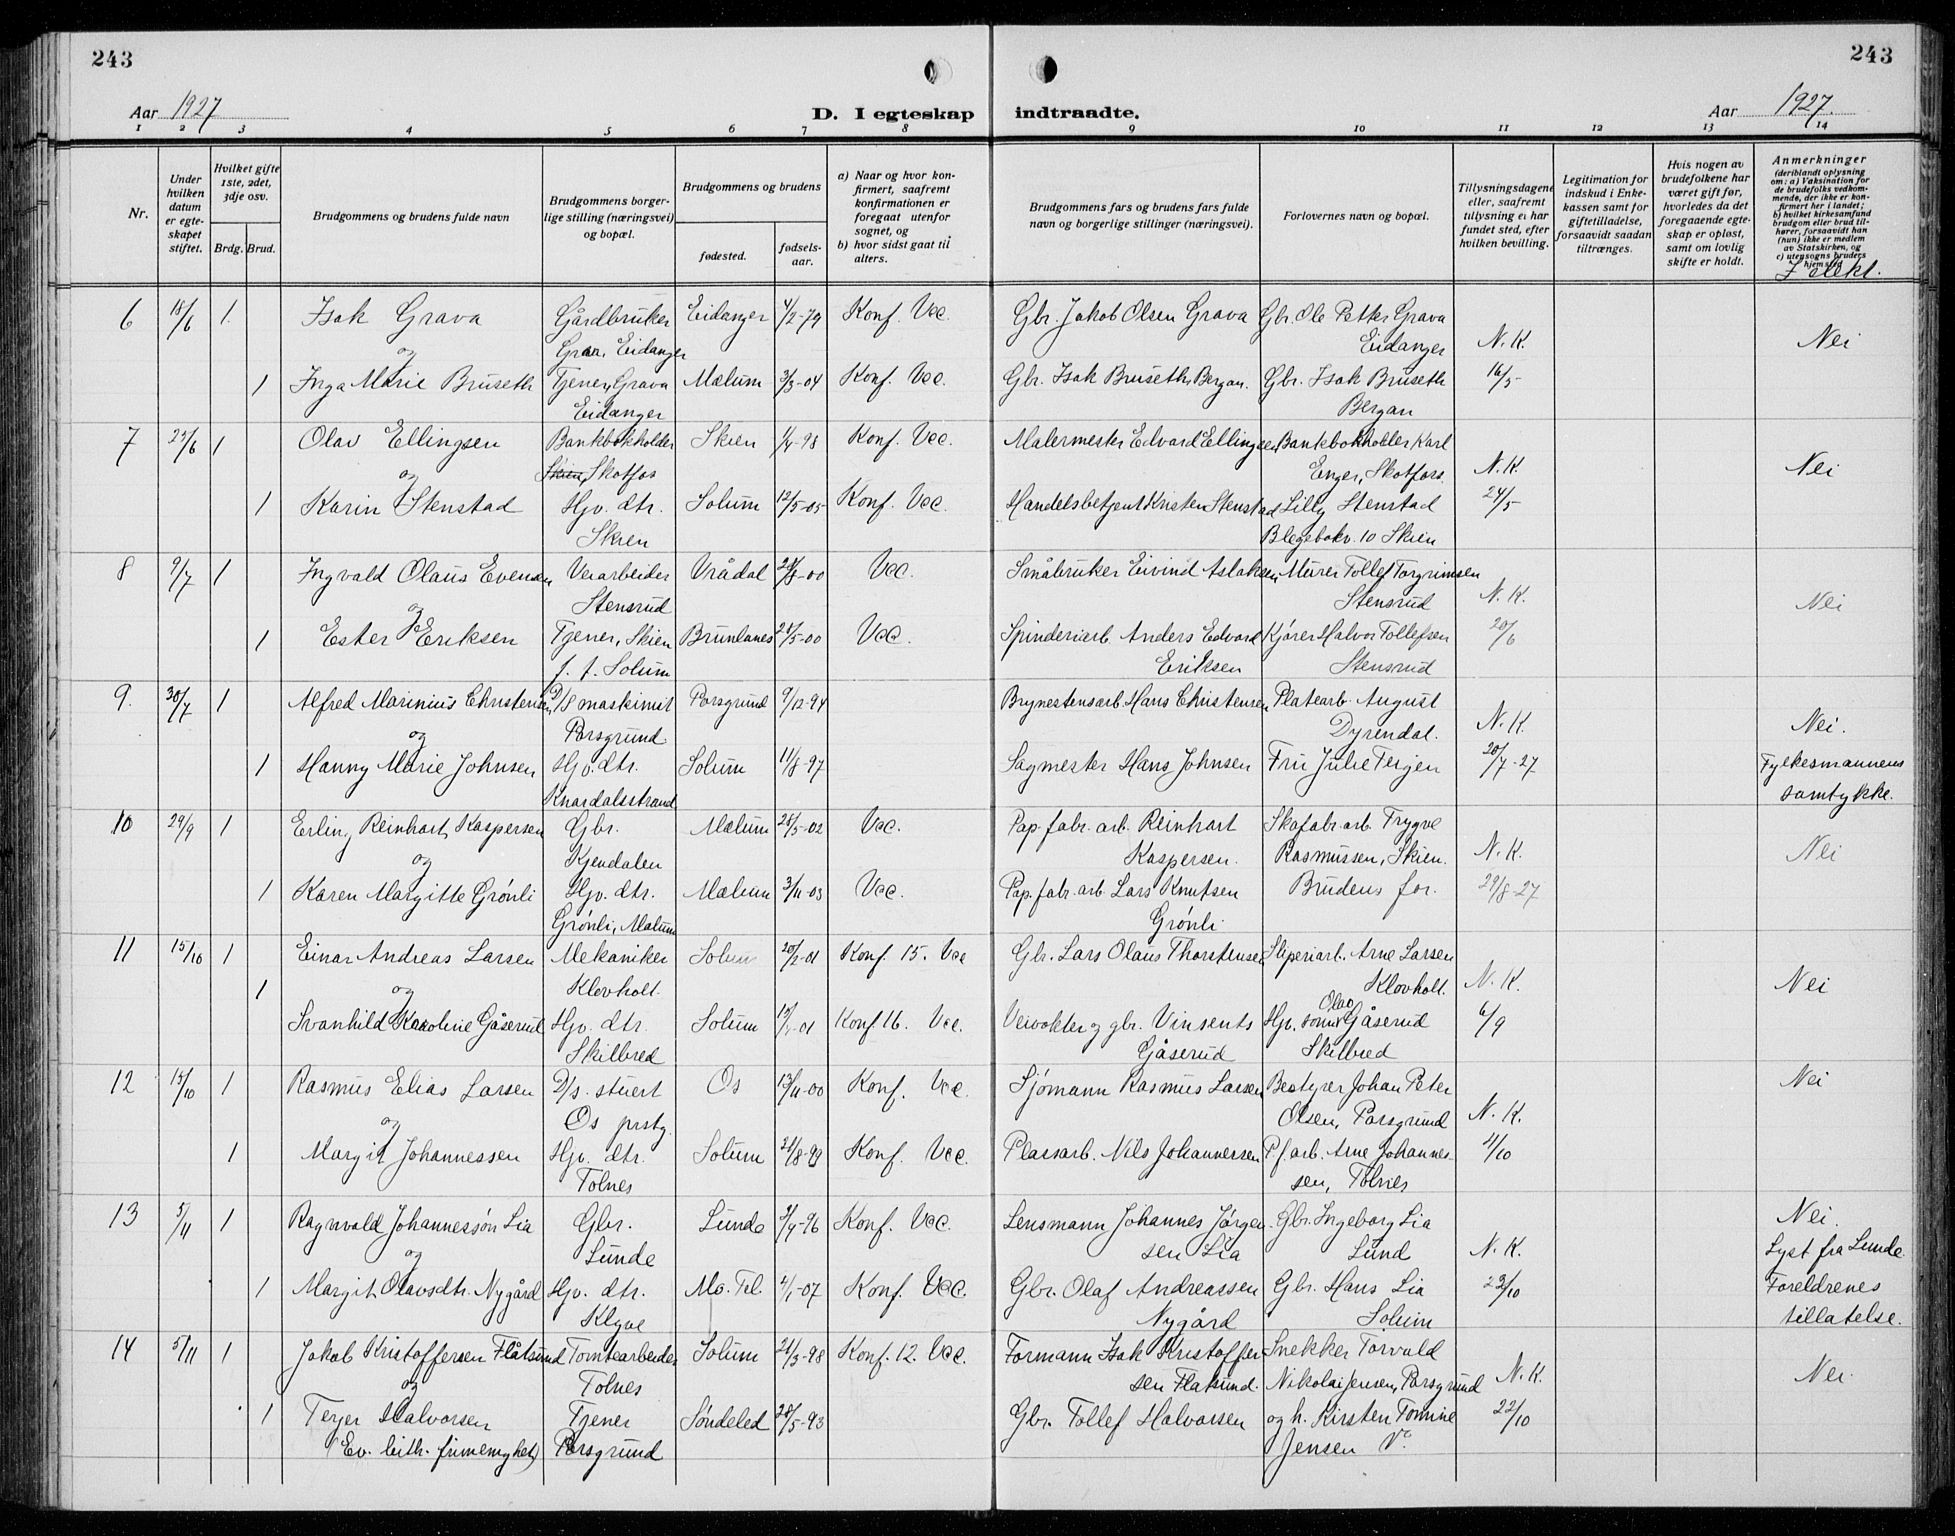 243
243
Aar 1927
D. I egteskap indtraadte.
Aar 1927.
1 2 3 4 5 6 7 8 9 10 11 12 13 14
Nr.
Under hvilken datum er egteskapet stiftet.
Hvilket gifte 1ste, 2det, 3dje osv.
Brdg. Brud.
Brudgommens og brudens fulde navn
Brudgommens borgerlige stilling (næringsvei) og bopæl.
Brudgommens og brudens
fødested.
fødselsaar.
a) Naar og hvor konfirmert, saafremt konfirmationen er foregaat utenfor sognet, og
b) hvor sidst gaat til alters.
Brudgommens fars og brudens fars fulde navn og borgerlige stillinger (næringsvei).
Forlovernes navn og bopæl.
Tillysningsdagene eller, saafremt tillysning ei har fundet sted, efter hvilken bevilling.
Legitimation for indskud i Enkekassen samt for giftetilladelse, forsaavidt saadan tiltrænges.
Hvis nogen av brudefolkene har været gift før, hvorledes da det foregaaende egteskap er opløst, samt om lovlig skifte er holdt.
Anmerkninger (deriblandt oplysning om: a) Vaksination for de brudefolks vedkommende, der ikke er konfirmert her i landet; b) hvilket kirkesamfund brudgom eller brud tilhører, forsaavidt han (hun) ikke er medlem av Statskirken, og c) utensogns bruders hjemsted
6 18/6 1. Isak Grava Gårdbruker Eidanger 4/2-79 Konf. Vac. Gbr. Jakob Olsen Grava Gbr. Ole Petter Grava
og Grava, Eidanger Eidanger N. K. Nei
1 Inga Marie Bruseth Tjener, Grava Mælum 3/3-04 Konf. Vac. Gbr. Isak Bruseth, Bergan. Gbr. Isak Bruseth 16/5
Eidanger Bergan
7 25/6 1 Olav Ellingsen Bankbokholder Skien 1/4-98 Konf. Vac. Malermester Edvard Ellingsen Bankbokholder Karl
og Skien, Skotfos Enger, Skotfoss. N. K. Nei
1 Karin Stenstad Hjv. dtr. Solum 12/5-05 Konf. Vac. Handelsbetjent Kristen Stenstad Lilly Stenstad 24/5
Skien Blegebakv. 10 Skien
8 9/7 1 Ingvald Olaus Evensen Verarbeider Vrådal 28/8-00 Vac. Småbruker Eivind Aslaksen Murer Tollef Torgrimsen
og Stensrud Stensrud N. K. Nei
1 Ester Eriksen Tjener, Skien Brunlanes 28/5-00 Vac. Spinderiarb. Anders Edvard Kjører Halvor Tollefsen 20/6
f. t. Solum Eriksen Stensrud
9. 30/7 1 Alfred Marinius Christensen D/S maskinist Porsgrund 9/12-94 Brynestensarb. Hans Christensen Platearb. August
og Porsgrund. Dyrendal. N. K. Nei.
1 Hanny Marie Johnsen Hjv. dtr. Solum 11/8-97 Sagmester Hans Johnsen Fru Julie Terjen 20/7-27 Fylkesmannens
Knardalsstrand samtykke.
10 24/9 1 Erling Reinhart Kaspersen Gbr. Mælum 25/5-02 Vac. Pap. fabr. arb. Reinhart Skofabr. arb. Trygve
og Kjendalen Kaspersen. Rasmussen, Skien. N. K. Nei
1 Karen Margitte Grønli Hjv. dtr. Mælum 3/11-03 Vac. Pap. fabr. arb. Lars Knutsen Brudens far. 29/8-27
Grønli, Mælum Grønli
11 15/10 1 Einar Andreas Larsen Mekaniker Solum 20/2-01 Konf. 15. Vac Gbr. Lars Olaus Thorstensen Sliperiarb. Arne Larsen
1 og Klovholt. Klovholt. N. K. Nei
Svanhild Karoline Gåserud Hjv. dtr. Solum Konf. 16. Vac. Veivokter og gbr. Vinsents Hjv. sønn Olav Gåserud 6/9
Skilbred Gåserud Skilbred
12 15/10 1 Rasmus Elias Larsen D/s. stuert Os 13/11-00 Konf. Vac. Sjømann Rasmus Larsen Bestyrer Johan Peter Nei
og Os prstg. Olsen, Porsgrund N. K.
1 Margit Johannessen Hjv. dtr. Solum 21/8-99 Konf. Vac. Plassarb. Nils Johannessen P. f. arb. Arne Johannes- 4/10
Tolnes sen, Tolnes
13 5/11 1 Ragnvald Johannessøn Lia Gbr. Lunde 3/4-96 Konf. Vac. Lensmann Johannes Jørgen- Gbr. Ingeborg Lia Nei.
og Lunde sen Lia Lund N. K. Lyst fra Lunde
1 Margit Olavsdtr. Nygård Hjv. dtr. Mo. Tel. 4/1-07 Konf. Vac. Gbr. Olaf Andreassen Gbr. Hans Lia 23/10 Foreldrenes
Klyve Nygård Solum tillatelse.
14 5/11 1 Jakob Kristoffersen Flåtsund Tomtearbeider Solum 28/3-98 Konf. 12. Vac. Formann Isak Kristoffer- Snekker Torvald
og Tolnes sen Flatsund. Nikolai Jensen, Porsgrund N. K. Nei.
1 Terjer Halvorsen Tjener Søndeled 28/5-93 Gbr. Tollef Halvorsen og h. Kirsten Tomine 22/10
(Ev. luth. frimenighet) Porsgrund Jensen